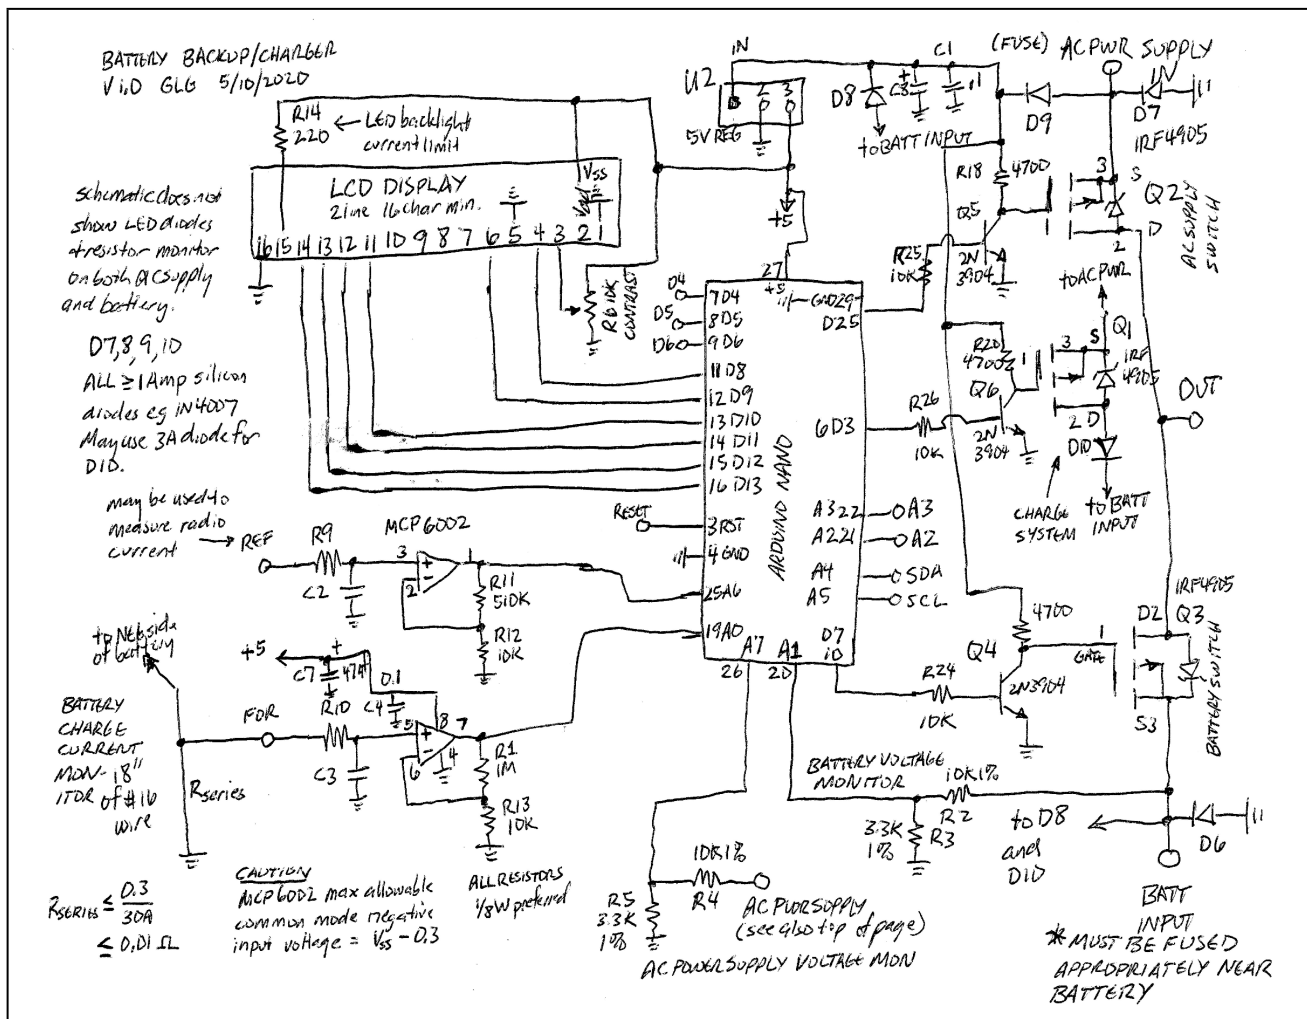 BATTERY BACKUP/CHARGER
V1.0 GLG 5/10/2020
R14
220
LED backlight
current limit
LCD DISPLAY
2 line 16 char min.
Vss
Vdd
16 15 14 13 12 11 10 9 8 7 6 5 4 3 2 1
schematic does not
show LED diodes
+ resistor monitor
on both AC supply
and battery.
D7,8,9,10
ALL ≥ 1 Amp silicon
diodes eg 1N4007
May use 3A diode for
D10.
may be used to
measure radio
current
REF
R9
C2
MCP6002
3
2
1
+
-
R11
510K
R12
10K
to NEG side
of battery
+5
C7
+
47uf
0.1
C4
BATTERY
CHARGE
CURRENT
MON-
ITOR
18"
of #16
wire
FOR
R10
C3
Rseries
5
6
8
7
4
+
-
R1
1M
R13
10K
RSERIES ≤ 0.3
30A
≤ 0.01 Ω
CAUTION
MCP6002 max allowable
common mode negative
input voltage = Vss - 0.3
ALL RESISTORS
1/8 W preferred
IN
U2
2 3
5V REG
+5
R6 10K
CONTRAST
D8
to BATT INPUT
+
C8
C1
.1
(FUSE)
AC PWR SUPPLY
D9
D7
IRF4905
R18
4700
Q5
2N
3904
R25
10K
3
S
1
D
2
Q2
AC SUPPLY
SWITCH
to AC PWR
R20
4700
Q6
2N
3904
R26
10K
3
S
1
2 D
Q1
IRF
4905
D10
CHARGE
SYSTEM
to BATT
INPUT
OUT
ARDUINO NANO
27
+5
GND29
D25
D4
7 D4
D5
8 D5
D6
9 D6
11 D8
12 D9
13 D10
14 D11
15 D12
16 D13
RESET
3 RST
4 GND
25 A6
19 A0
6 D3
A3 22
A3
A2 21
A2
A4
SDA
A5
SCL
D7
10
A7
26
A1
20
R24
10K
Q4
2N3904
4700
1
GATE
IRF4905
D2
Q3
S3
BATTERY SWITCH
BATTERY VOLTAGE
MONITOR
10K 1%
R2
3.3K
1%
R3
to D8
and
D10
D6
BATT
INPUT
* MUST BE FUSED
APPROPRIATELY NEAR
BATTERY
10K 1%
R4
R5
3.3K
1%
AC PWR SUPPLY
(see also top of page)
AC POWER SUPPLY VOLTAGE MON